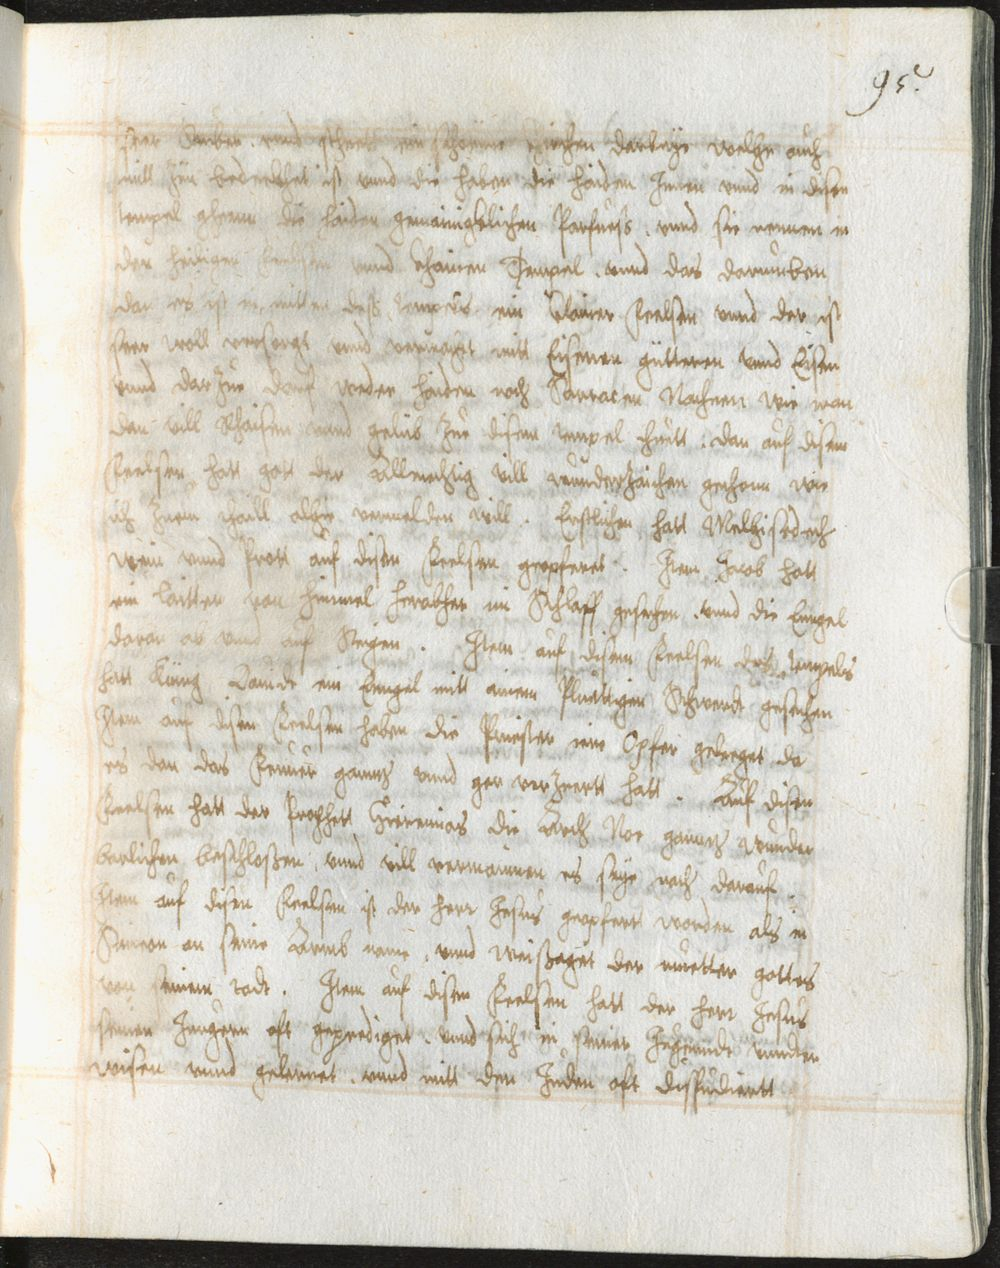 95.
seer sauber vnnd schoen ein schöenne Kirchen darbeÿe welche auch
mitt Zin bedeckhet ist vnnd die haben die haiden Innen vnnd in disen
tempel gheenn die haiden gemainigklichen Parfuess, vnnd sie nennen in
den heiligen Feelsen vnnd khainen Tempel, vnnd das darumben
dan es ist in mitten dess tempels ein klainer Feelsen vnnd der ist
seer woll versorgt vnnd vermacht mitt Eisenen gütteren vnnd Eisen
vnnd darzue darf weder haiden noch Sarracen Nachnen wie man
dan vill Rhaisen vnnd gelüb zue disem tempel thuett. dan auf disem
Feelsen hatt gott der Allmechtig vill wunderzaichen gethonn wie
ich zuem thaill alhie vermelden will. Erstlichen hatt Melchisedech
wein vnnd Prott auf disen Feelsen geopferet. Item Jacob hatt
ein laitter von himmel herabher im Schlaff gesechen, vnnd die Enngel
daran ab vnnd auf Steigen. Item auf disem Feelsen dess tempels
hatt König Dauidt ein Enngel mitt ainem Pluettigen Schwerdt gesechen
Item auf disen Feelsen haben die Priester ire Opfer geleget da
es dan das Feuer gannz vnnd gar verzeertt hatt. Auf disen
Feelsen hatt der Prophett Hieremias die Arch Noe gannz wunder
barlichen beschlossen, vnnd vill vermainnen es seÿe noch darauf.
Item auf disen Feelsen ist der herr Jesus geopfert worden als in
Simeon an seine Armb name, vnnd Weissaget der muetter gottes
von seinem todt. Item auf disen Feelsen hatt der herr Jesus
seinen Jungern oft geprediget, vnnd sich in seiner Jugenndt vnnder
wisen vnnd gelernet, vnnd mitt den Juden oft dissbudiertt